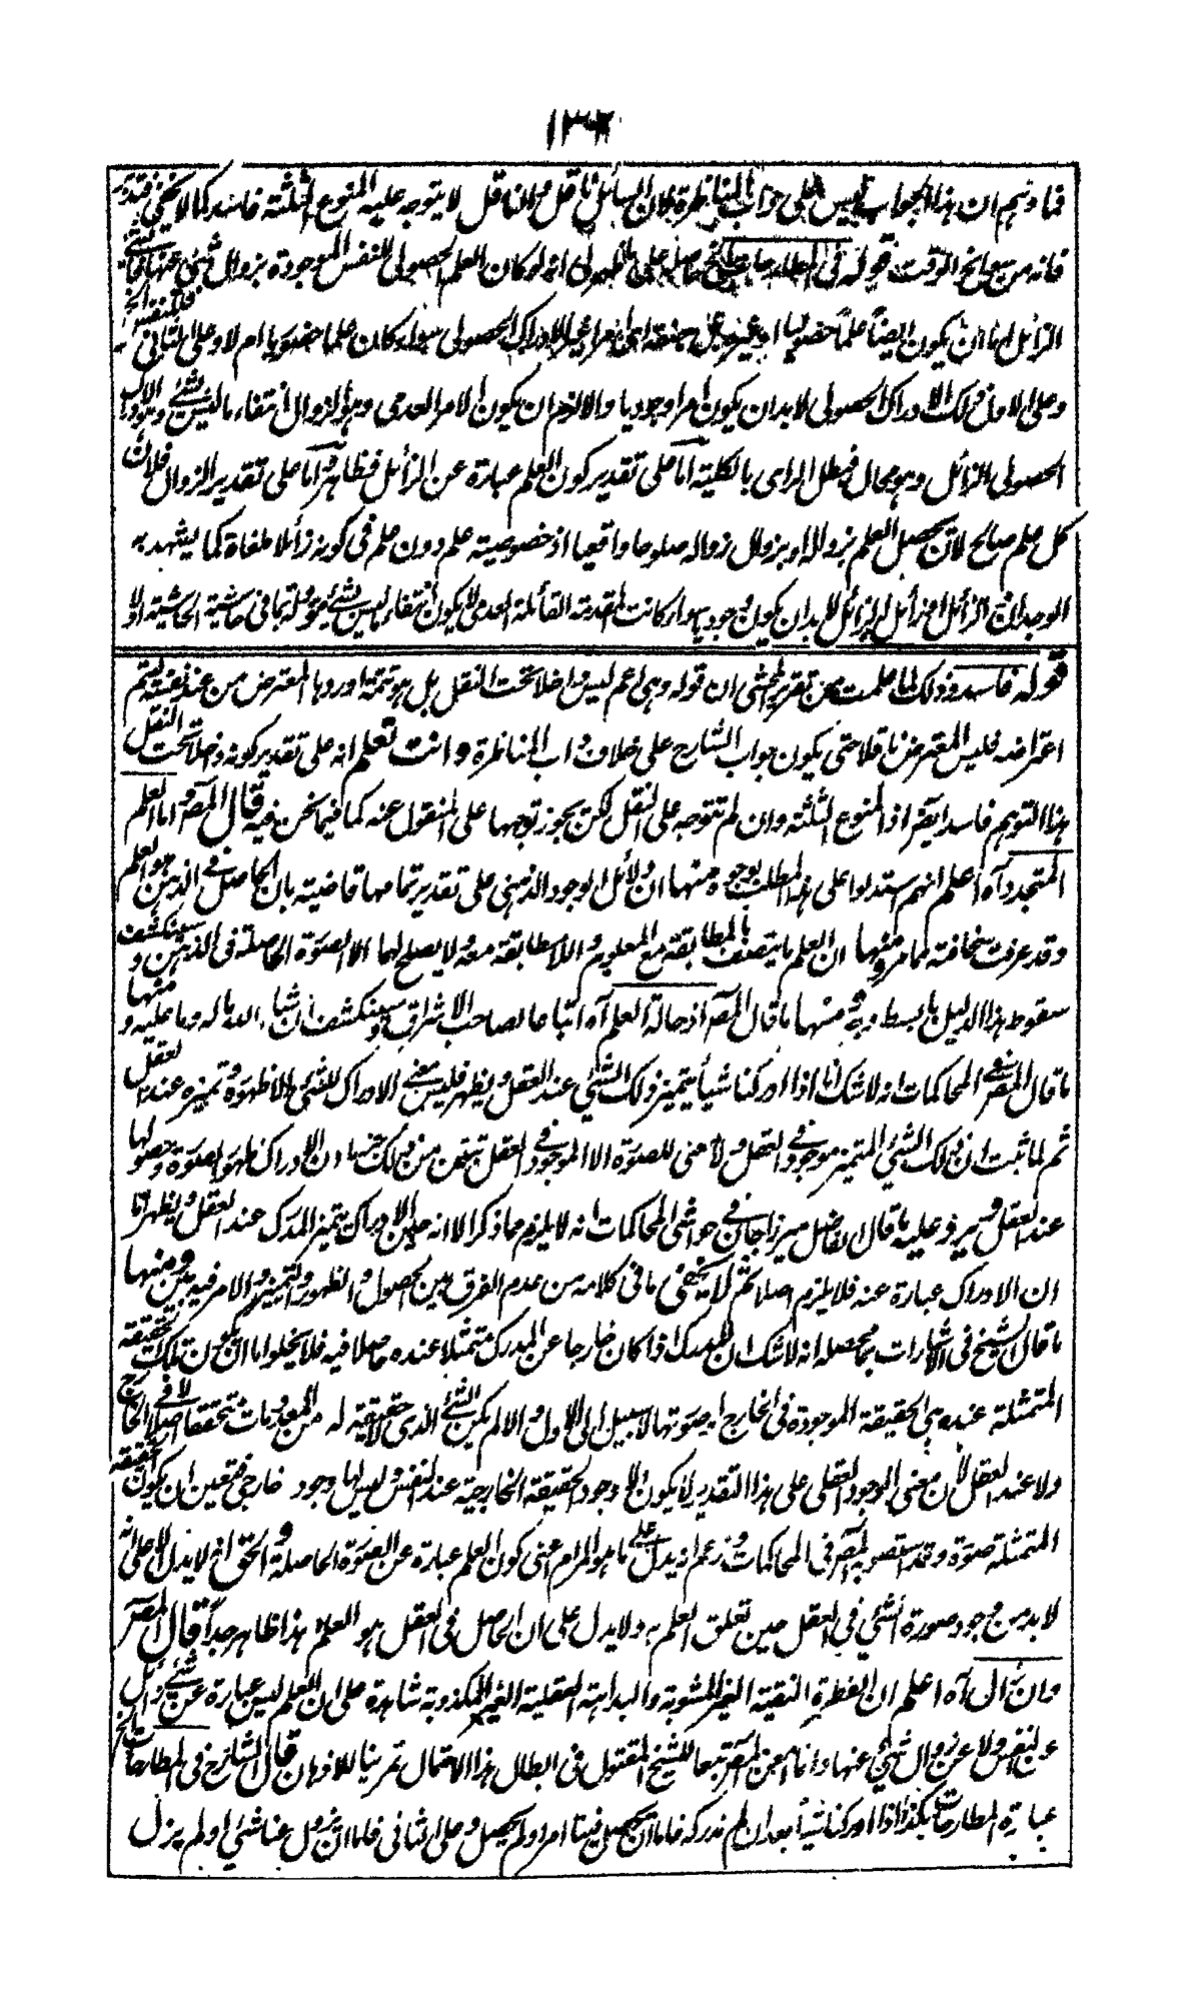 فما وهم ان هذا الجواب ليس على داب المناظرة لان السائل ناقل والناقل لا يتوجه عليه المنوع الثلثة فاسد كما لا يخفى فتدبر
فانه من سوانح الوقت قوله فى المطارحات الخ حاصله على انه لو كان العلم الحصولى للنفس الموجودة بزوال شئ عنها
الزائل اما ان يكون ايضا علما حضوريا او غيره الادراك الحصولى سواء كان علما حضوريا ام لا وعلى الثانى
وعلى الاول فذلك الادراك الحصولى لابد ان يكون امرا وجوديا والا لزم ان يكون الامر العدمى وهو الزوال انتفاء ما ليس بشئ وهو الادراك
الحصولى الزائل وهو محال فبطل الراى بالكلية اما على تقدير كون العلم عبارة عن الزائل فظاهر واما على تقدير الزوال فلان
كل علم صالح لان يحصل العلم بزواله او بزوال زواله صلوحا واقعيا اذ خصوصية علم دون علم فى كونه زائلا ملغاة كما يشهد به
الوجدان الزائل لابد ان يكون وجوديا سواء كانت المقدمة القائلة العدمى لا يكون انتفاء ما ليس بشئ كما فى حاشية الحاشية اولا
قوله فاسد وذلك لما علمت من تقرير المحشى ان قوله وهى اعم ليس داخلا تحت النقل بل هو تتمة اوردها المعترض من عند نفسه ليتم
اعتراضه فليس المعترض ناقلا حتى يكون جواب الشارح على خلاف داب المناظرة وانت تعلم انه على تقدير كونه داخلا تحت النقل
هذا التوهم فاسد ايضا اذ المنوع الثلثة وان لم تتوجه على النقل لكن يجوز توجهها على المنقول عنه كما فيما نحن فيه قال المص واما العلم
المتجدد آه اعلم انهم استدلوا على هذا المطلب بوجوه منها ان دلائل الوجود الذهنى على تقدير تمامها قاضية بان الحاصل فى الذهن هو العلم
وقد عرفت سخافته مما مر ومنها ان العلم ما يتصف بالمطابقة مع المعلوم واللا مطابقة معه ولا يصلح لها الا الصورة الحاصلة فى الذهن وسينكشف
سقوط هذا الدليل بابسط وجه ومنها ما قال المص اذ حالة العلم آه اتباعا لصاحب الاشراق وسينكشف ان شاء الله ماله وما عليه ومنها
ما قال المص فى المحاكمات انه لا شك انا اذا ادركنا شيأ يتميز ذلك الشئ عند العقل ويظهر فليس معنى الادراك للشئ الا ظهوره وتميزه عند العقل
ثم لما ثبت ان ذلك الشئ المتميز موجود فى العقل ولا معنى للصورة الا الموجود فى العقل تيقن من ذلك ان الادراك ظهور الصورة وحصولها
عند العقل ويرد عليه ما قال الفاضل ميرزاجان فى حواشى المحاكمات انه لا يلزم مما ذكر الا انه حين الادراك يتميز المدرك عند العقل ويظهر اما
ان الادراك عبارة عنه فلا يلزم اصلا ثم لا يخفى ما فى كلامه من عدم الفرق بين الحصول والظهور والتميز والامر فيه هين ومنها
ما قال الشيخ فى الاشارات محصله انه لا شك ان المدرك اذا كان خارجا عن المدرك متمثلا عنده حاصلا فيه فلا يخلو اما ان يكون تلك الحقيقة
المتمثلة عنده هى الحقيقة الموجودة فى الخارج او صورتها لا سبيل الى الاول والا لم يكن الشئ الذى لا حقيقة له من المعدومات متحققا اصلا لا فى الخارج
ولا عند العقل لان معنى الوجود العقلى على هذا التقدير لا يكون الا وجود الحقيقة الخارجية عند النفس وليس لها وجود خارجى فتعين ان يكون الحقيقة
المتمثلة صورة وقد استصوبه المص فى المحاكمات وزعم انه يدل على ما هو المرام اعنى كون العلم عبارة عن الصورة الحاصلة والحق انه لا يدل الا على انه
لابد من وجود صورة الشئ فى العقل حين تعلق العلم به ولا يدل على ان الحاصل فى العقل هو العلم هذا ظاهر جدا قال المص
وان زال آه اعلم ان الفطرة النقية الغير المشوبة والبداهة العقلية الغير المكذوبة شاهدة على ان العلم ليس عبارة عن شئ زائل
عن النفس ولا عن زوال شئ عنها وانما امعن المص تبعا للشيخ المقتول فى ابطال هذا الاحتمال تمرينا للاذهان قال الشارح فى المطارحات الخ
عبارة المطارحات هكذا اذا ادركنا شيأ بعد ان لم ندركه فاما ان يحصل فينا امر او لم يحصل وعلى الثانى فاما ان يزول عنا شئ او لم يزل